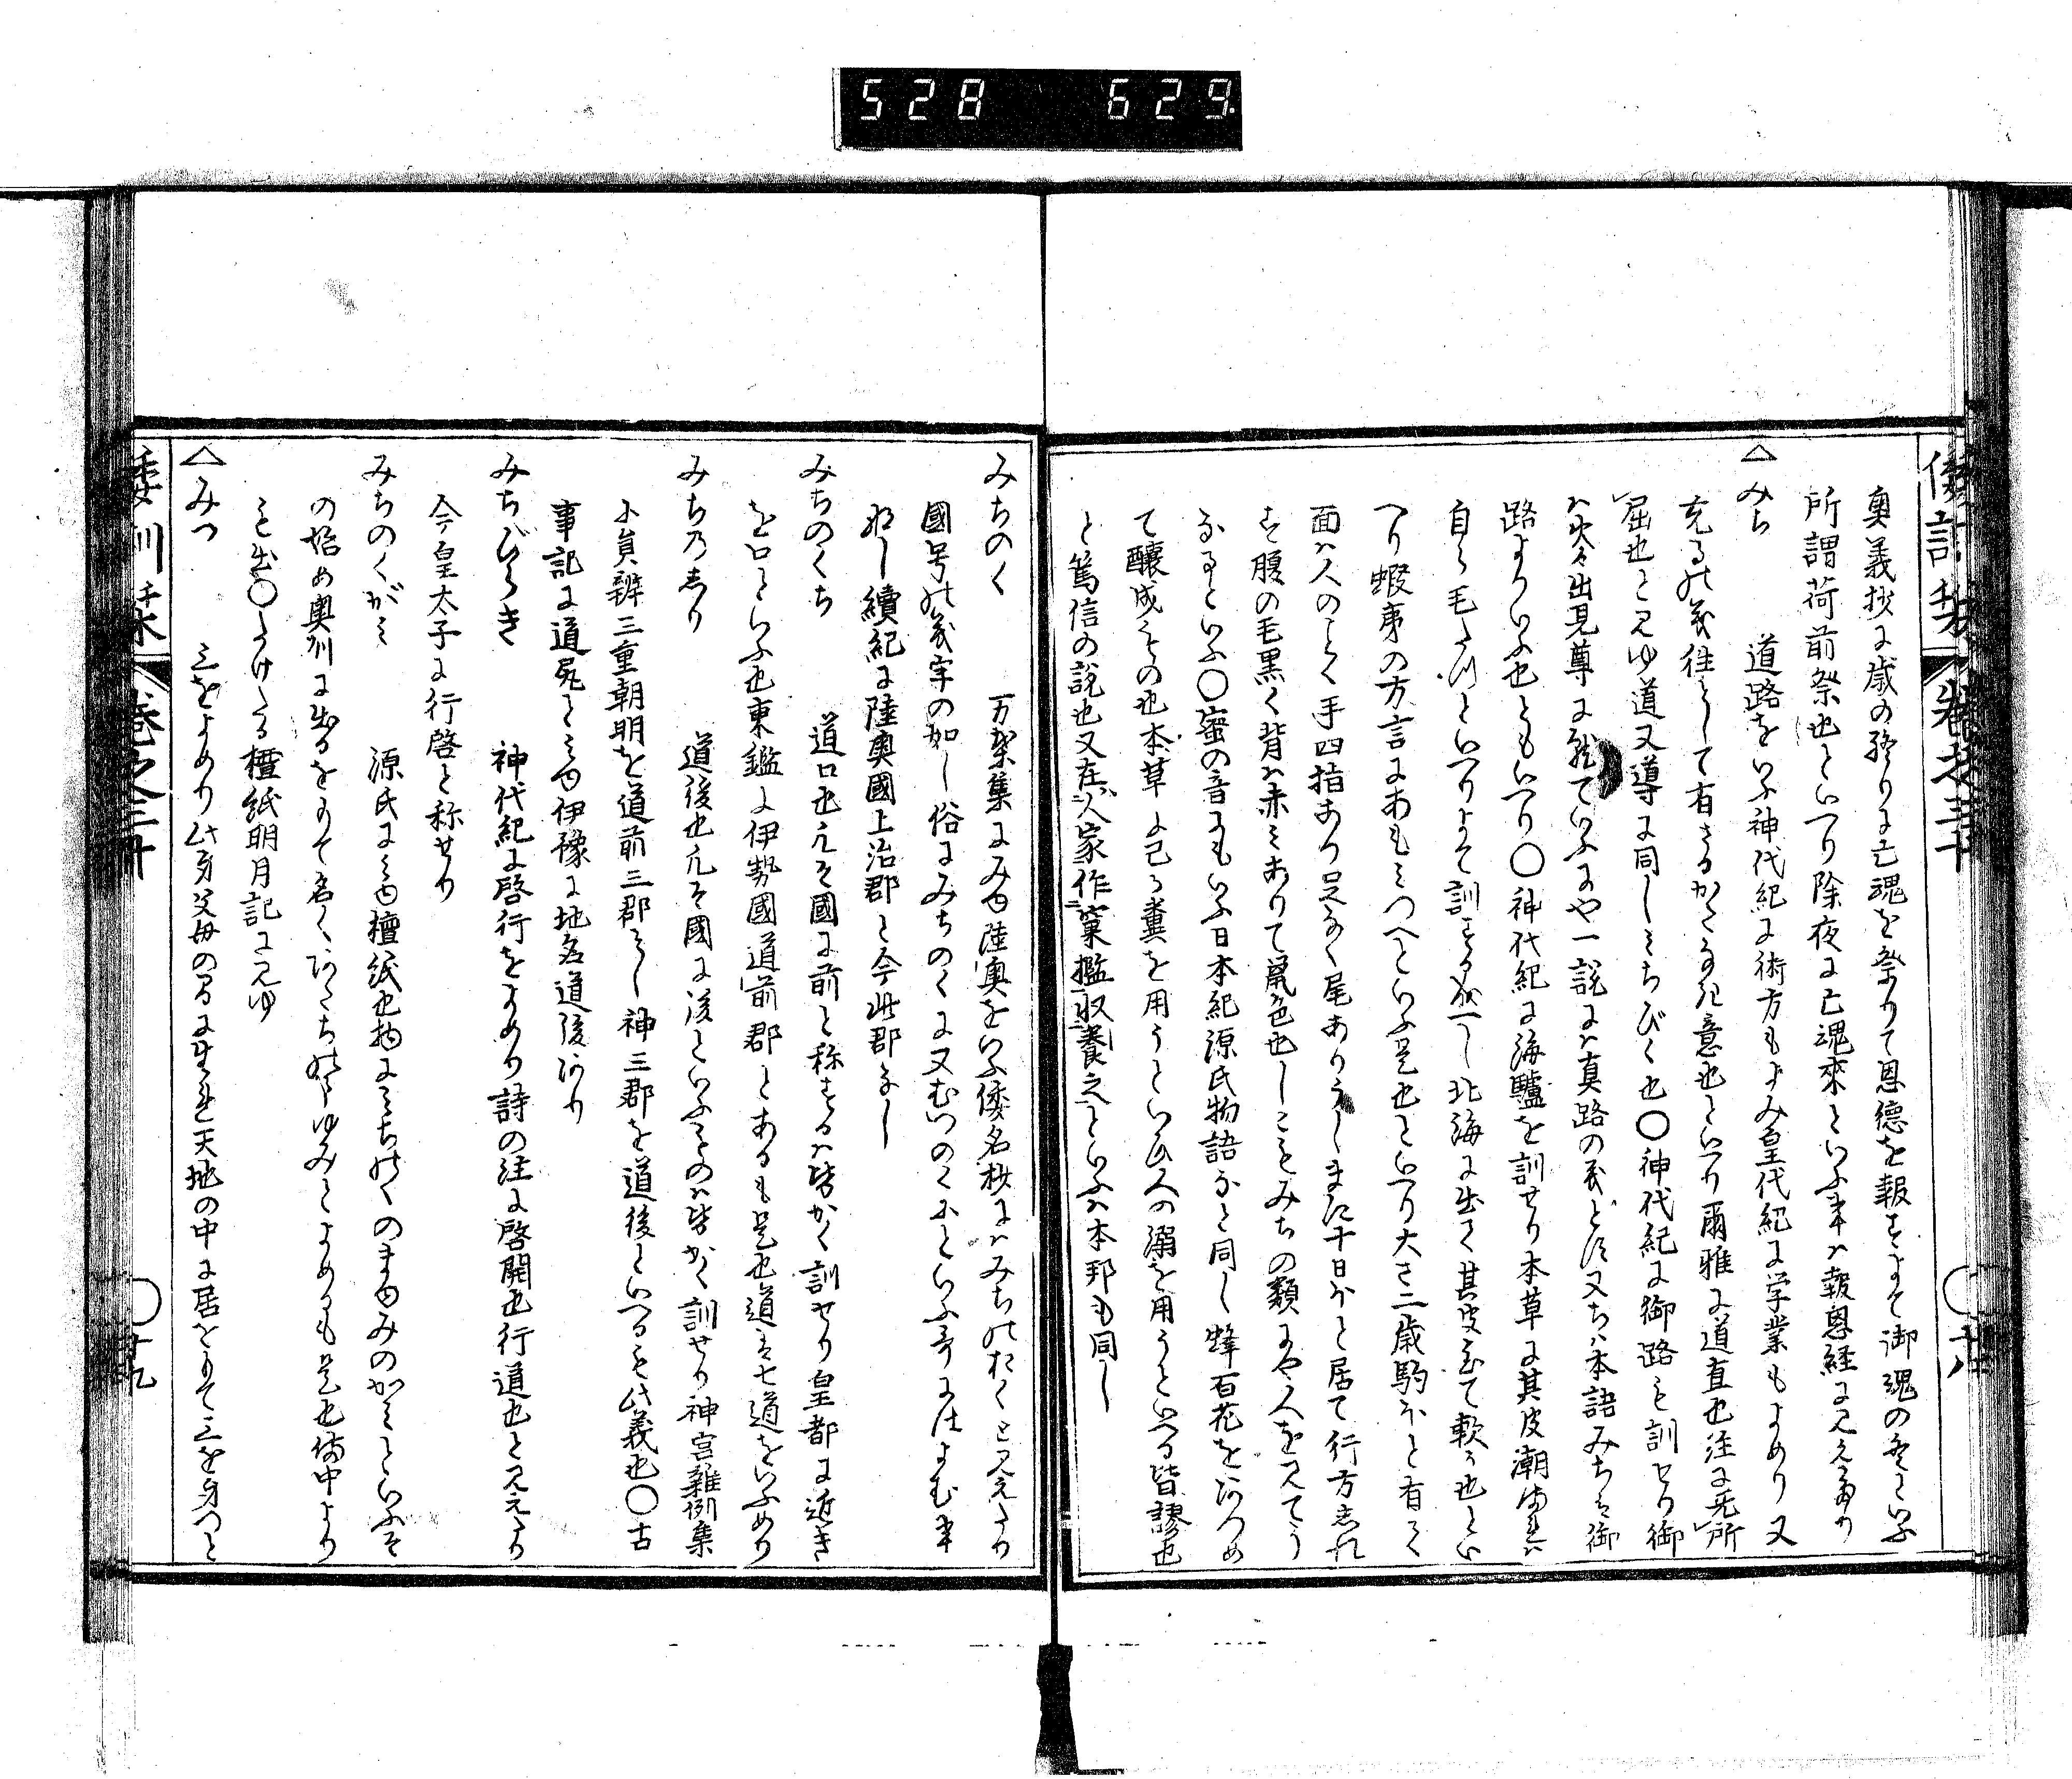 528 629
倭訓栞 巻之三十 ○廿八
奥義抄に歳の終りに亡魂を祭りて恩徳を報するよて御魂の冬といふ
所謂荷前祭也といへり除夜に亡魂來といふ事ハ報恩経に見えたり
△みち 道路をいふ神代紀に術方もよみ皇代紀に学業もよめり又
充るの義往として有さるかたなき意也といへり爾雅に道直也注に无所
屈也と見ゆ道又導に同しみちびく也○神代紀に御路を訓せり御
ハ火々出見尊に就ていふにや一説にハ真路の義とす又ちハ本語みちハ御
路よりいふ也ともいへり○神代紀に海驢を訓せり本草に其皮潮満れハ
自ら毛たつといへりよて訓する成へし北海に出て其皮至て軟か也とい
へり蝦夷の方言にあもしつへといふ是也といへり大さ二歳駒ほと有て
面ハ人のことく手四指あり足なく尾ありうしまに十日ほと居て行方しれ
す腹の毛黒く背ハ赤みありて鼠色也しこもみちの類にや人を見てう
なるといふ○蜜の音にもいふ日本紀源氏物語なと同し蜂百花をあつめ
て醸成もの也本草に己か糞を用うといひ人の溺を用うといへる皆謬也
と篤信の説也又在人家作菓檻収養之といふハ本邦も同し
みちのく 万葉集にみゆ陸奥をいふ倭名抄にハみちのおくと見えたり
國号の義字の如し俗にみちのくに又むつのくにといふ哥にはよむ事
なし續紀に陸奥國上治郡と今此郡なし
みちのくち 道口也凡そ國に前と称するハ皆かく訓せり皇都に近き
を口といふ也東鑑に伊勢國道前郡とあるも是也道ハ七道をいふめり
みちのしり 道後也凡そ國に後といふものハ皆かく訓せり神宮雜例集
に員辨三重朝明を道前三郡とし神三郡を道後といへるも此義也○古
事記に道尻とみゆ伊豫に地名道後あり
みちびらき 神代紀に啓行をよめり詩の注に啓開也行道也と見えたり
今皇太子に行啓と称せり
みちのくがみ 源氏にみゆ檀紙也物にみちのくのまゆみのかみといふそ
の始め奥州に出るをもて名くあたちのまゆみとよめるも是也備中より
も出○ふける檀紙明月記に見ゆ
△みつ 三をよめり此身父母の間に生れ天地の中に居をもて三を身つと
倭訓栞 巻之三十 ○廿九